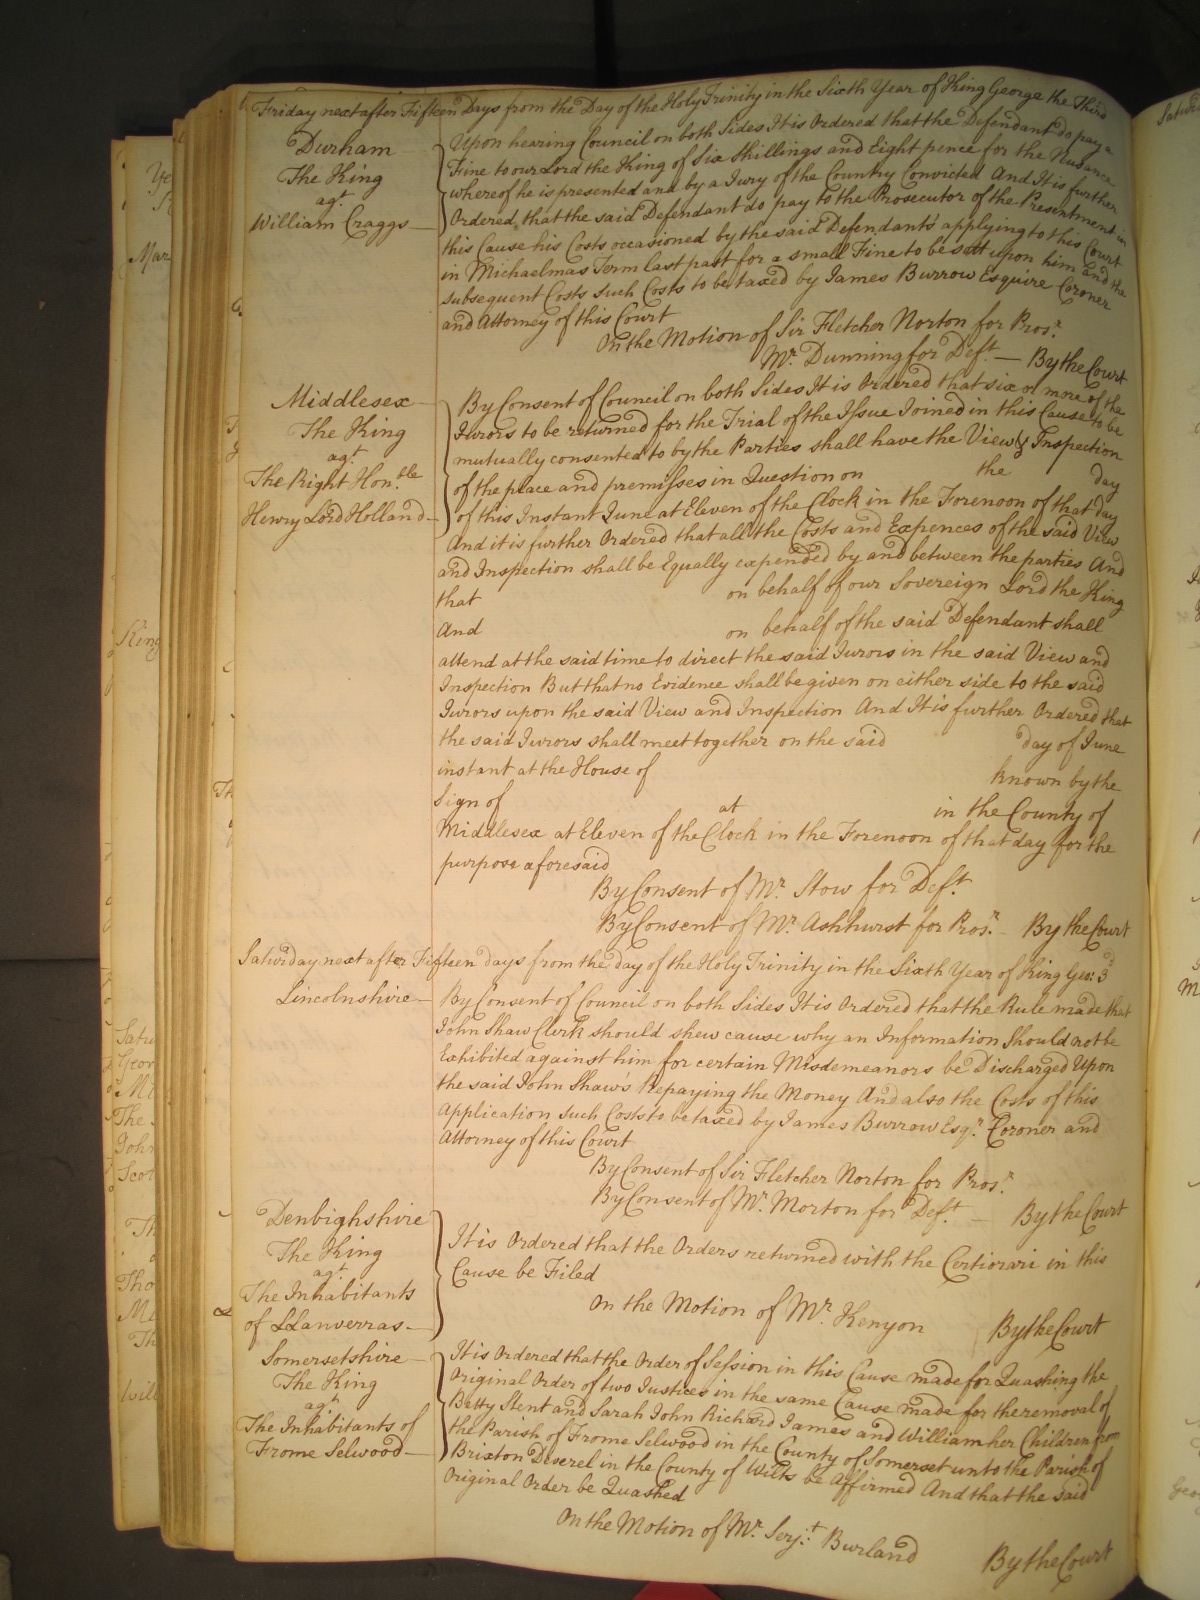 Friday next after Fifteen Days from the Day of the Holy Trinity in the Sixth Year of King George the Third
Durham
The King
agt
William Craggs
Upon hearing Council on both Sides It is Ordered that the Defendant do pay a
Fine to our Lord the King of Six Shillings and Eight pence for the Nusance
whereof he is presented and by a Jury of the Country Convicted And It is further
Ordered that the said Defendant do pay to the Prosecutor of the Presentment in
this Cause his Costs occasioned by the said Defendant's applying to this Court
in Michaelmas Term last past for a small Fine to be sett upon him and the
subsequent Costs such Costs to be taxed by James Burrow Esquire Coroner
and Attorney of this Court
On the Motion of Sir Fletcher Norton for Prosr.
Mr. Dunning for Deft. — By the Court
Middlesex
The King
agt
The Right Honble
Henry Lord Holland
By Consent of Council on both Sides It is Ordered that six or more of the
Jurors to be returned for the Trial of the Issue Joined in this Cause to be
mutually consented to by the Parties shall have the View & Inspection
of the place and premisses in Question on the day
of this Instant June at Eleven of the Clock in the Forenoon of that day
And it is further Ordered that all the Costs and Expences of the said View
and Inspection shall be Equally expended by and between the parties And
that on behalf of our Sovereign Lord the King
And on behalf of the said Defendant shall
attend at the said time to direct the said Jurors in the said View and
Inspection But that no Evidence shall be given on either side to the said
Jurors upon the said View and Inspection And It is further Ordered that
the said Jurors shall meet together on the said day of June
instant at the House of known by the
Sign of at in the County of
Middlesex at Eleven of the Clock in the Forenoon of that day for the
purpose aforesaid
By Consent of Mr. Stow for Deft.
By Consent of Mr. Ashhurst for Prosr. By the Court
Saturday next after Fifteen days from the day of the Holy Trinity in the Sixth Year of King Geo: 3d
Lincolnshire
By Consent of Council on both Sides It is Ordered that the Rule made that
John Shaw Clerk should shew cause why an Information Should not be
Exhibited against him for certain Misdemeanors be Discharged Upon
the said John Shaw's Repaying the Money And also the Costs of this
Application such Costs to be taxed by James Burrow Esqr. Coroner and
Attorney of this Court
By Consent of Sir Fletcher Norton for Prosr.
By Consent of Mr. Morton for Deft. — By the Court
Denbighshire
The King
agt
The Inhabitants
of LLanverras
It is Ordered that the Orders returned with the Certiorari in this
Cause be Filed
On the Motion of Mr. Kenyon By the Court
Somersetshire
The King
agt
The Inhabitants of
Frome Selwood
It is Ordered that the Order of Session in this Cause made for Quashing the
Original Order of two Justices in the same Cause made for the removal of
Betty Stent and Sarah John Richard James and William her Children from
the Parish of Frome Selwood in the County of Somerset unto the Parish of
Brixton Deverel in the County of Wilts be Affirmed And that the said
Original Order be Quashed
On the Motion of Mr. Serjt. Burland By the Court